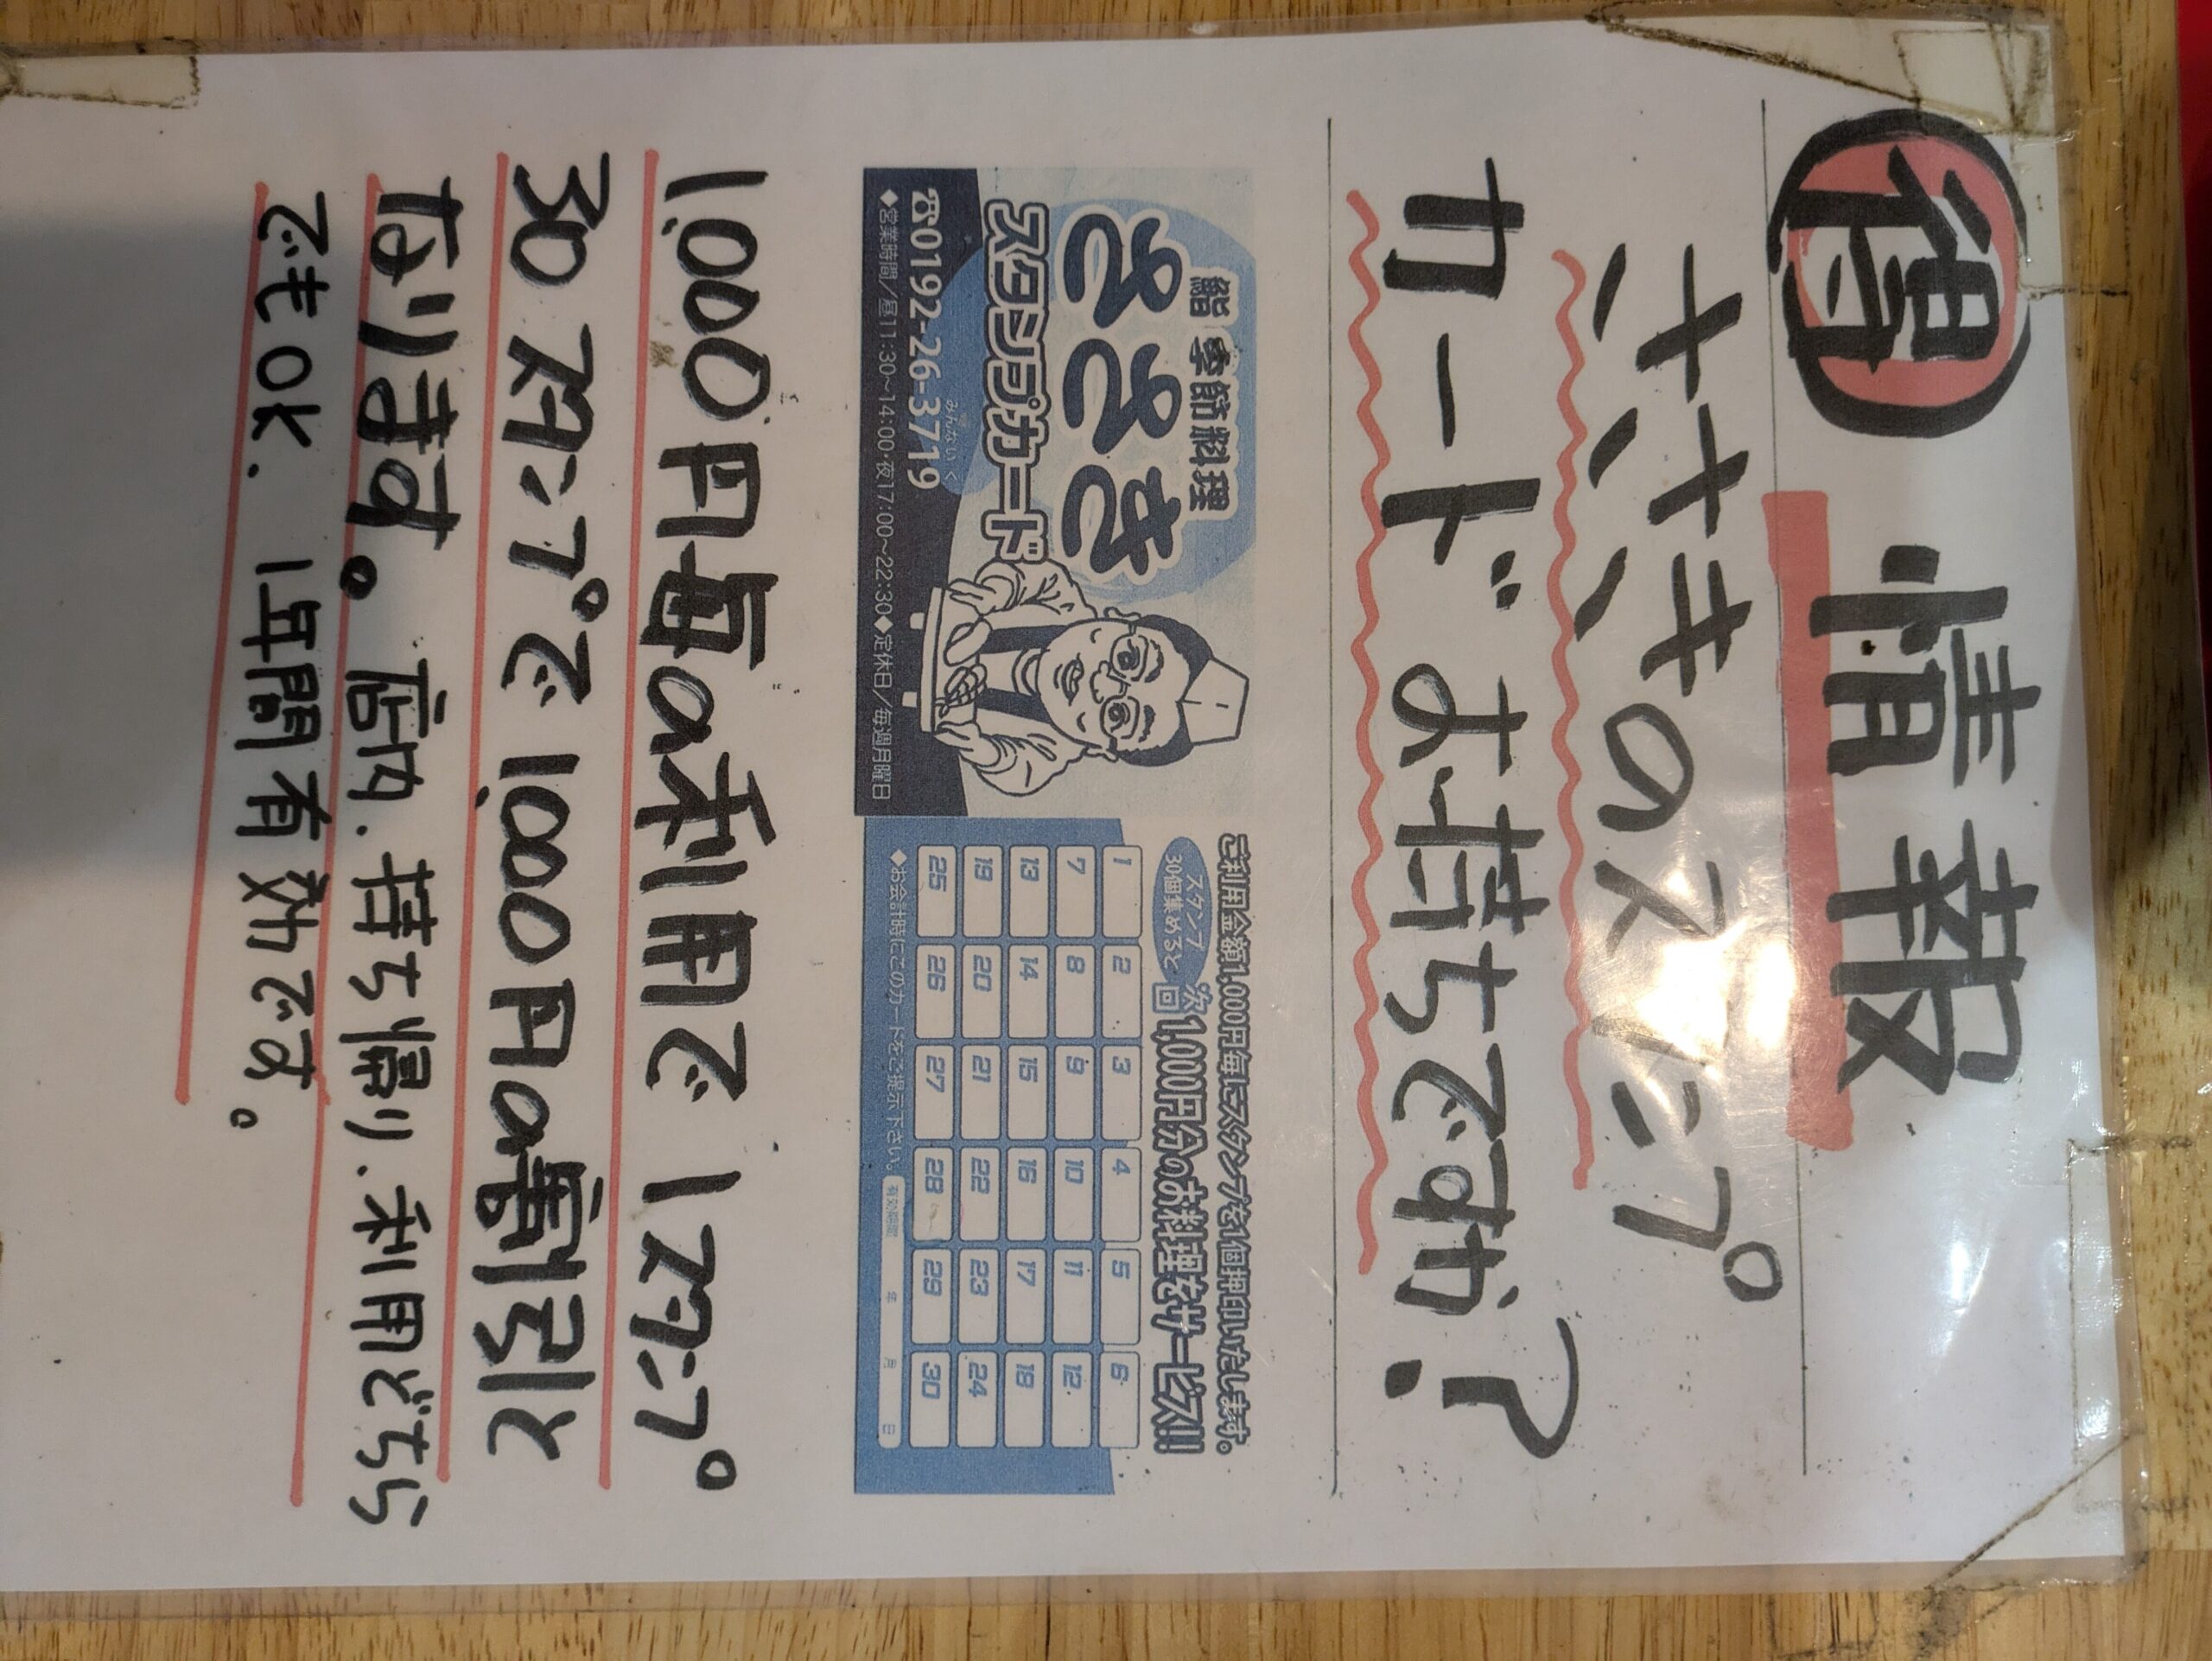 得 情報
ササキのスタンプ
カードお持ちですか?
鮨 季節料理
ささき
スタンプカード
みんないく
☎0192-26-3719
◆営業時間/昼11:30~14:00・夜17:00~22:30◆定休日/毎週月曜日
ご利用金額1,000円毎にスタンプを1個押印いたします。
スタンプ
30個集めると
次回1,000円分のお料理をサービス!!
1 2 3 4 5 6
7 8 9 10 11 12
13 14 15 16 17 18
19 20 21 22 23 24
25 26 27 28 29 30
◆お会計時にこのカードをご提示下さい。 有効期限 年 月 日
1,000円毎の利用で1スタンプ。
30スタンプで1,000円の割引と
なります。店内.持ち帰り.利用どちら
でもOK、1年間有効です。